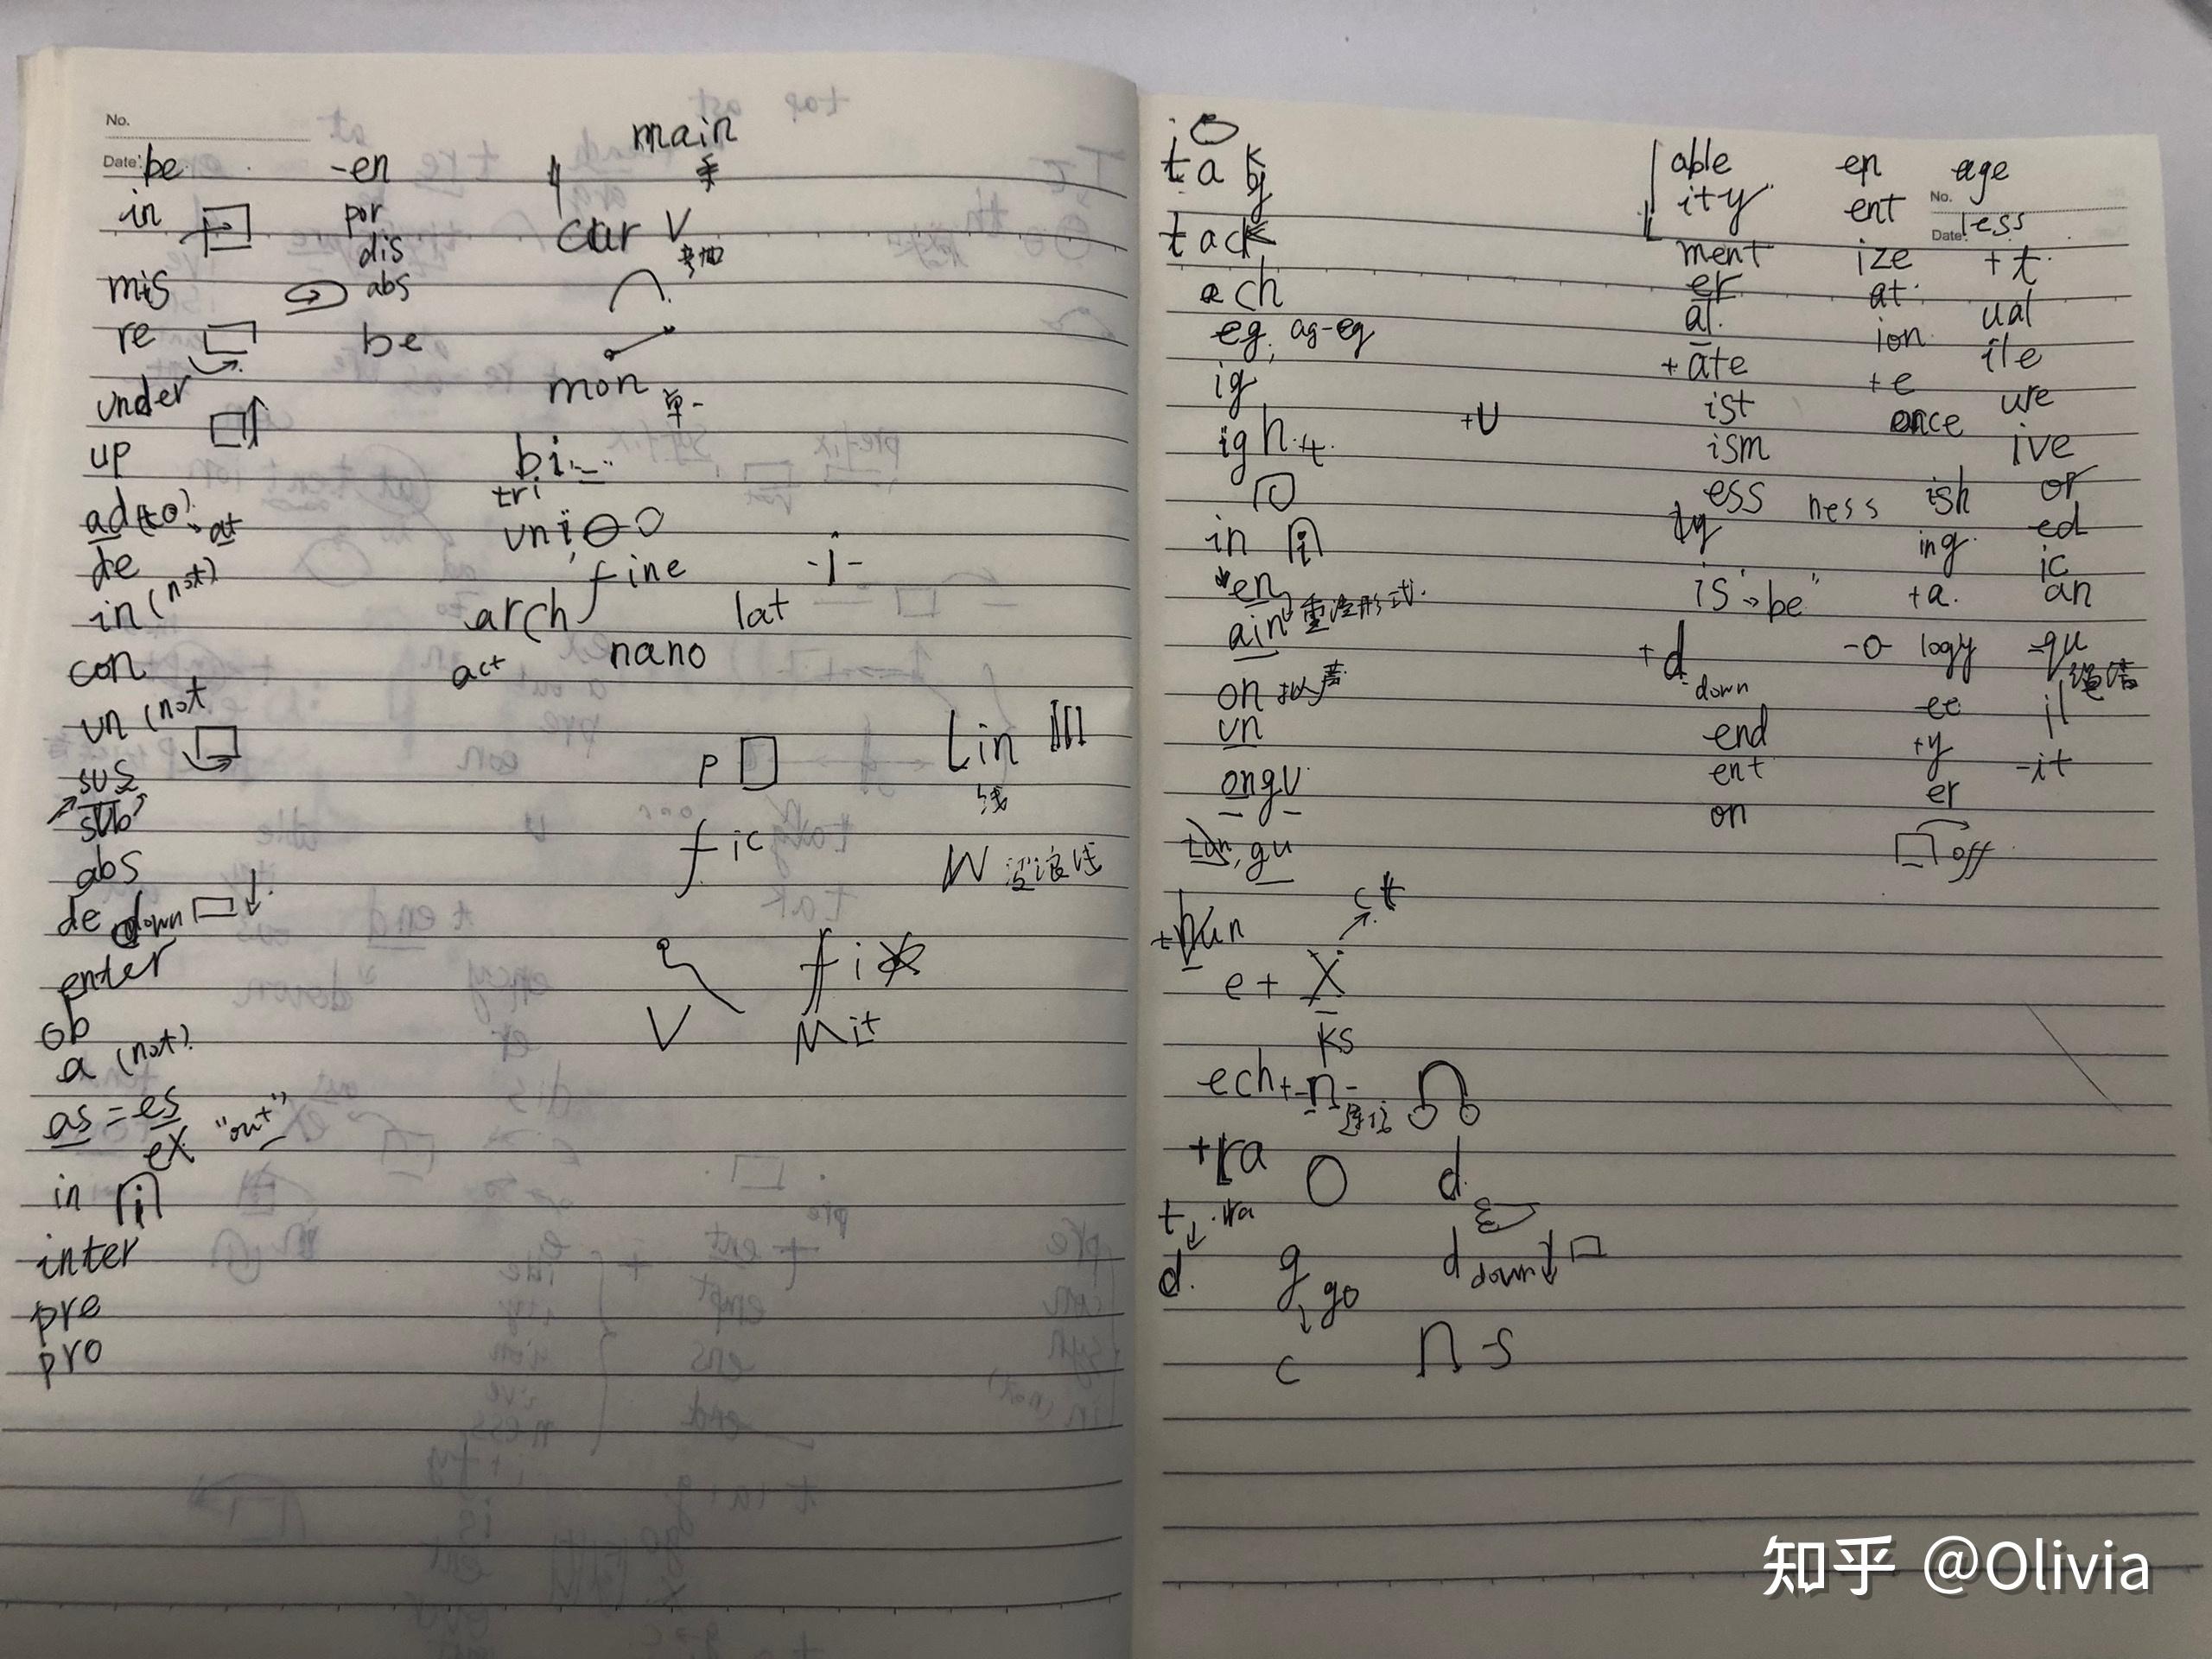 No.
Date:
be
in
mis
re
under
up
ad(to) at
de
in (not)
con
un (not
sus
sub
abs
de down
enter
ob
a (not)
as = es
ex "out"
in
inter
pre
pro
-en
por
dis
abs
be
main
手
car V
mon 单一
bi
tri
uni
fine
arch
lat
act
nano
p
Lin
线
fic
W 波浪线
fix
V
Mit
tak
tack
ach
eg, ag-eg
ig
igh+t
+U
in
en
ain 重读形式
on 拟声
un
ongu
gu
ct
e+ X
ks
ech+n
连接
+ra
O
d
t
d
g go
c
d down
n s
able
ity
ment
er
al
+ate
ist
ism
ess
ty
is "be"
+d
down
end
ent
on
ness
en
ent
ize
at
ion
+e
ence
ish
ing
+a
-o- logy
ee
+y
er
off
age
No.
Date:
less
+t
ual
ile
ure
ive
or
ed
ic
an
-qu
il
-it
知乎 @Olivia